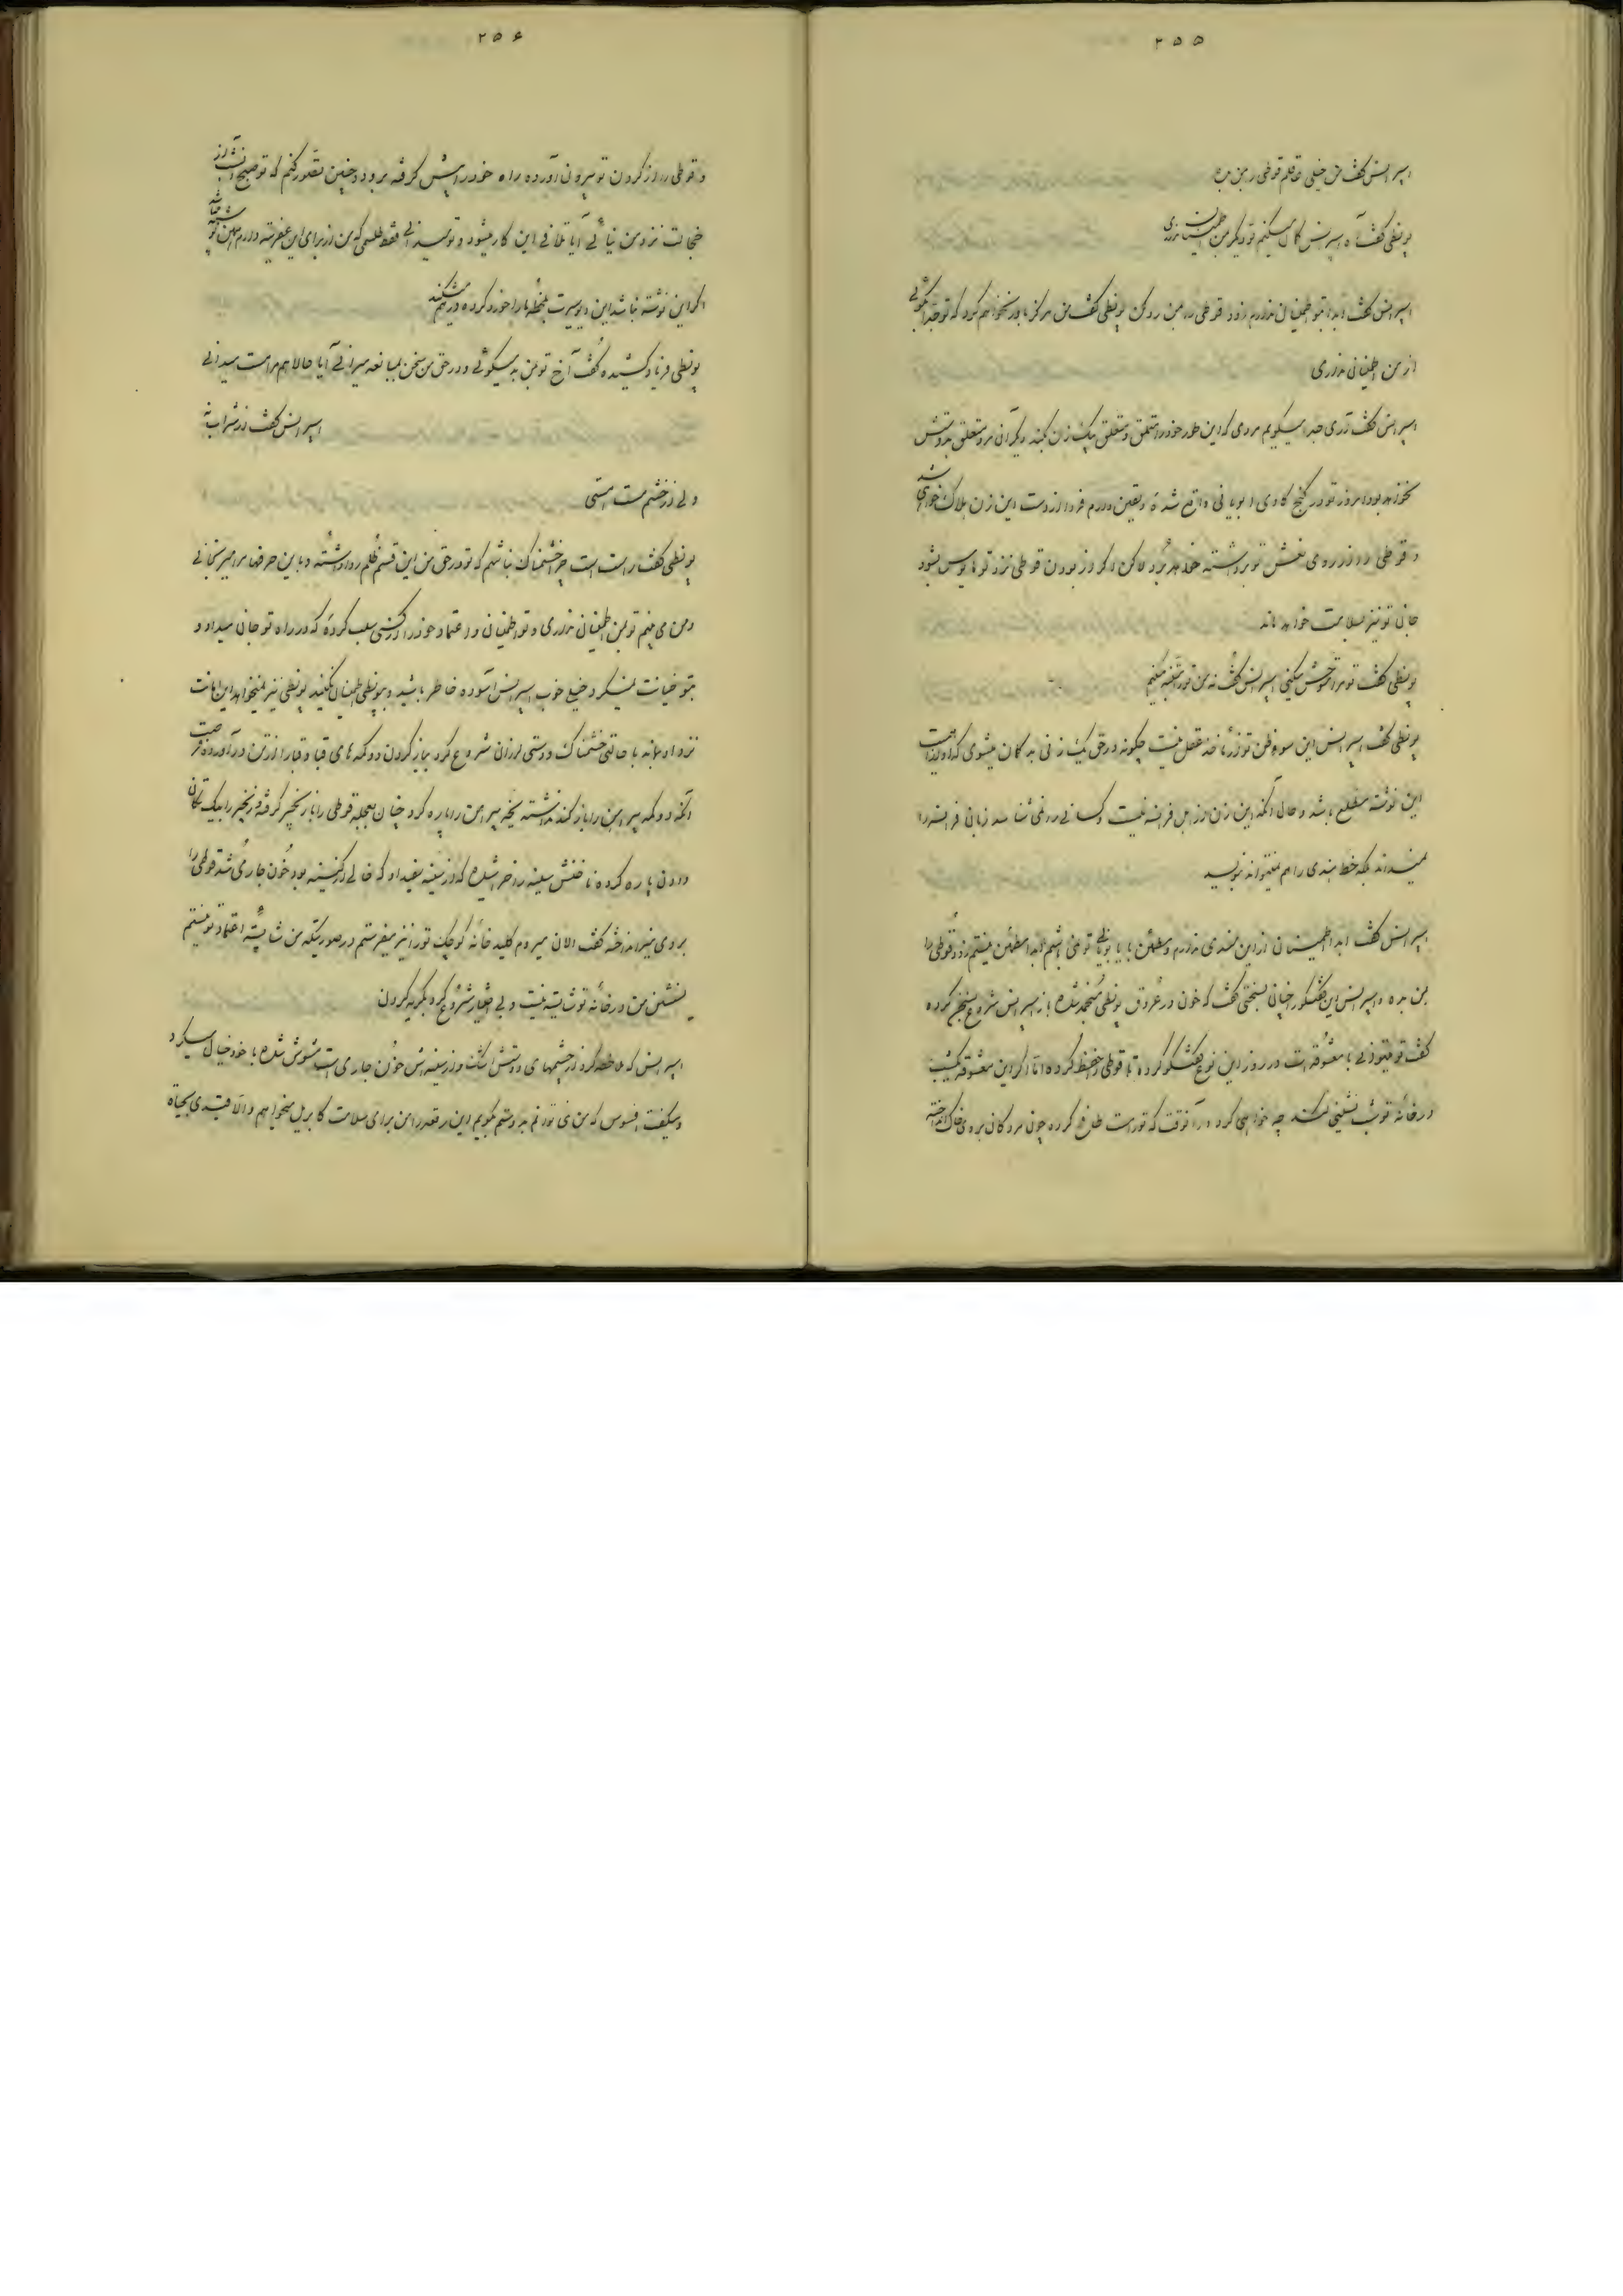 ۲۵۵
اسپرانس گفت من خیلی عاقلم قوطی را بمن بده
پونطی گفت آه اسپرانس گمان میکنم تو دیگر بمن اطمینان نداری
اسپرانس گفت ابدا بتو اطمینان ندارم زود قوطی را بمن رد کن پونطی گفت من هرگز باور نخواهم کرد که تو جدا میگوئی
از من اطمینانی نداری
اسپرانس گفت آری جدا میگویم مردی که این طور خود را متملق و متعلق بیک زن بکند دیگر آن مرد متعلق بدوستش
نخواهد بود امروز تو در کنج کاوی ابویانی واقع شدۀ و یقین دارم فردا از دست این زن هلاک خواهی شد
و قوطی را از روی نعش تو برداشته خواهد برد لاکن اگر از بودن قوطی نزد تو مأیوس بشود
جان تو نیز سلامت خواهد ماند
پونطی گفت تو مرا متوحش میکنی اسپرانس گفت نه من تو را متنبه میکنم
پونطی گفت اسپرانس این سوء ظن تو از مأخذ عقل نیست چگونه در حق یک زنی بد گمان میشوی که او از اهمیت
این نوشته مطلع باشد و حال آنکه این زن از اهل فرانسه نیست و کسانی را نمی شناسد زبان فرانسه را
نمیداند بلکه خط هندی را هم نمیتواند بنویسد
اسپرانس گفت ابدا اطمینانی از این هندی ندارم و مطمئن با یا بوئی تو نمی باشم ابدا مطمئن نیستم زود قوطی را
بمن بده اسپرانس این گفتگو را چنان بسختی گفت که خون در عروق پونطی منجمد شده باز اسپرانس شروع بسخن کرده
گفت تو میتوانی با معشوقه ات در روز این نوع گفتگو کرده تا قوطی را حفظ کرده اما اگر این معشوقه یکشب
در خانۀ تو شب نشینی بکند چه خواهی کرد و در آنوقت که تو را مست طافح کرده چون مردگان بروی خاک انداخته
۲۵۶
و قوطی را از گردن تو بیرون آورده راه خود را پیش گرفته برود و چنین تصور کنم که تو صبح آنشب از
خجالت نزد من نیائی آیا تلافی این کار میشود و تو میدانی فقط طلسمی که من از برای این عفریته دارم همین نوشته
اگر این نوشته نباشد این دیو سیرت بلحظۀ ما را خورد کرده در هم میشکند
پونطی فریاد کشیده گفت آخ تو بمن بد میگوئی و در حق من سخن بمبالغه میرانی آیا حالا هم مرا مست میدانی
اسپرانس گفت از شراب نه
ولی از خشم مست هستی
پونطی گفت راست است چرا خشمناک نباشم که تو در حق من این قسم ظلم روا داشته و با این حرفها مرا میرنجانی
و من می بینم تو بمن اطمینانی نداری و تو اطمینان و اعتماد خود را از کسی سلب کردۀ که در راه تو جان میداد و
بتو خیانت نمیکرد خیلی خوب اسپرانس آسوده خاطر باشید و بپونطی اطمینان نکنید پونطی نیز نمیخواهد این امانت
نزد او بماند با حالتی خشمناک و دستی لرزان شروع کرد بباز کردن دوکمه های قبا و قبا را از تن در آورده فرصت
آنکه دوکمه پیراهن را باز کند نداشته یخه پیراهن را پاره کرد چنان بعجله قوطی را با زنجیر گرفته و زنجیر را بیک تکان
دادن پاره کرده ناخنش سینه را خراشیده که از سینه سفید او که خالی از کینه بود خون جاری شد قوطی را
بروی میز انداخته گفت الان میروم کلید خانۀ کوچک تو را نیز میفرستم در صورتیکه من شایستۀ اعتماد تو نیستم
نشستن من در خانۀ تو شایسته نیست و بی اختیار شروع کرد بگریه کردن
اسپرانس که ملاحظه کرد از چشمهای دوستش اشک و از سینه اش خون جاری است مشوش شده با خود خیال میکرد
و میگفت افسوس که من نمی توانم بدوستم بگویم این رقعه را من برای سلامت کابریل میخواهم و الا قیدی بحیاة